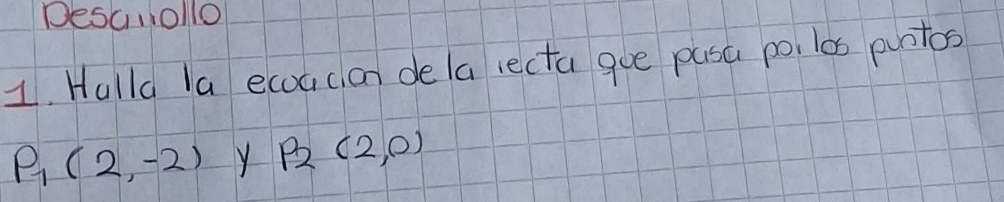 Desarrollo
1. Halla la ecuacion de la recta que pasa por los puntos
P1 (2,-2) y P2 (2,0)